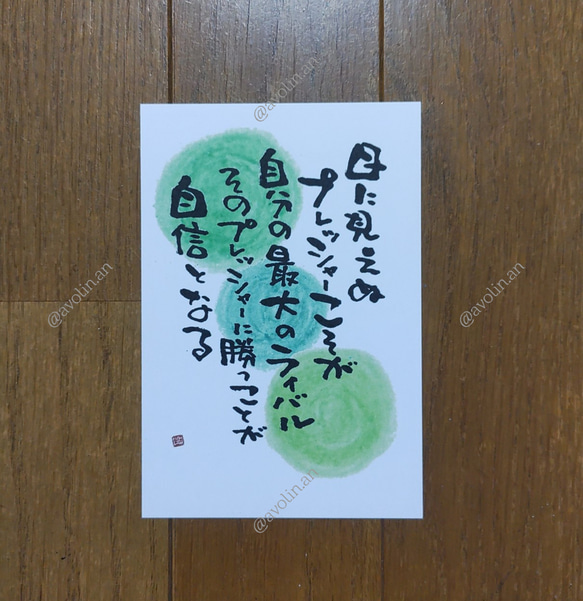 目に見えぬ
プレッシャーこそが
自分の最大のライバル
そのプレッシャーに勝つことが
自信となる
@avolin.an
@avolin.an
@avolin.an
@avolin.an